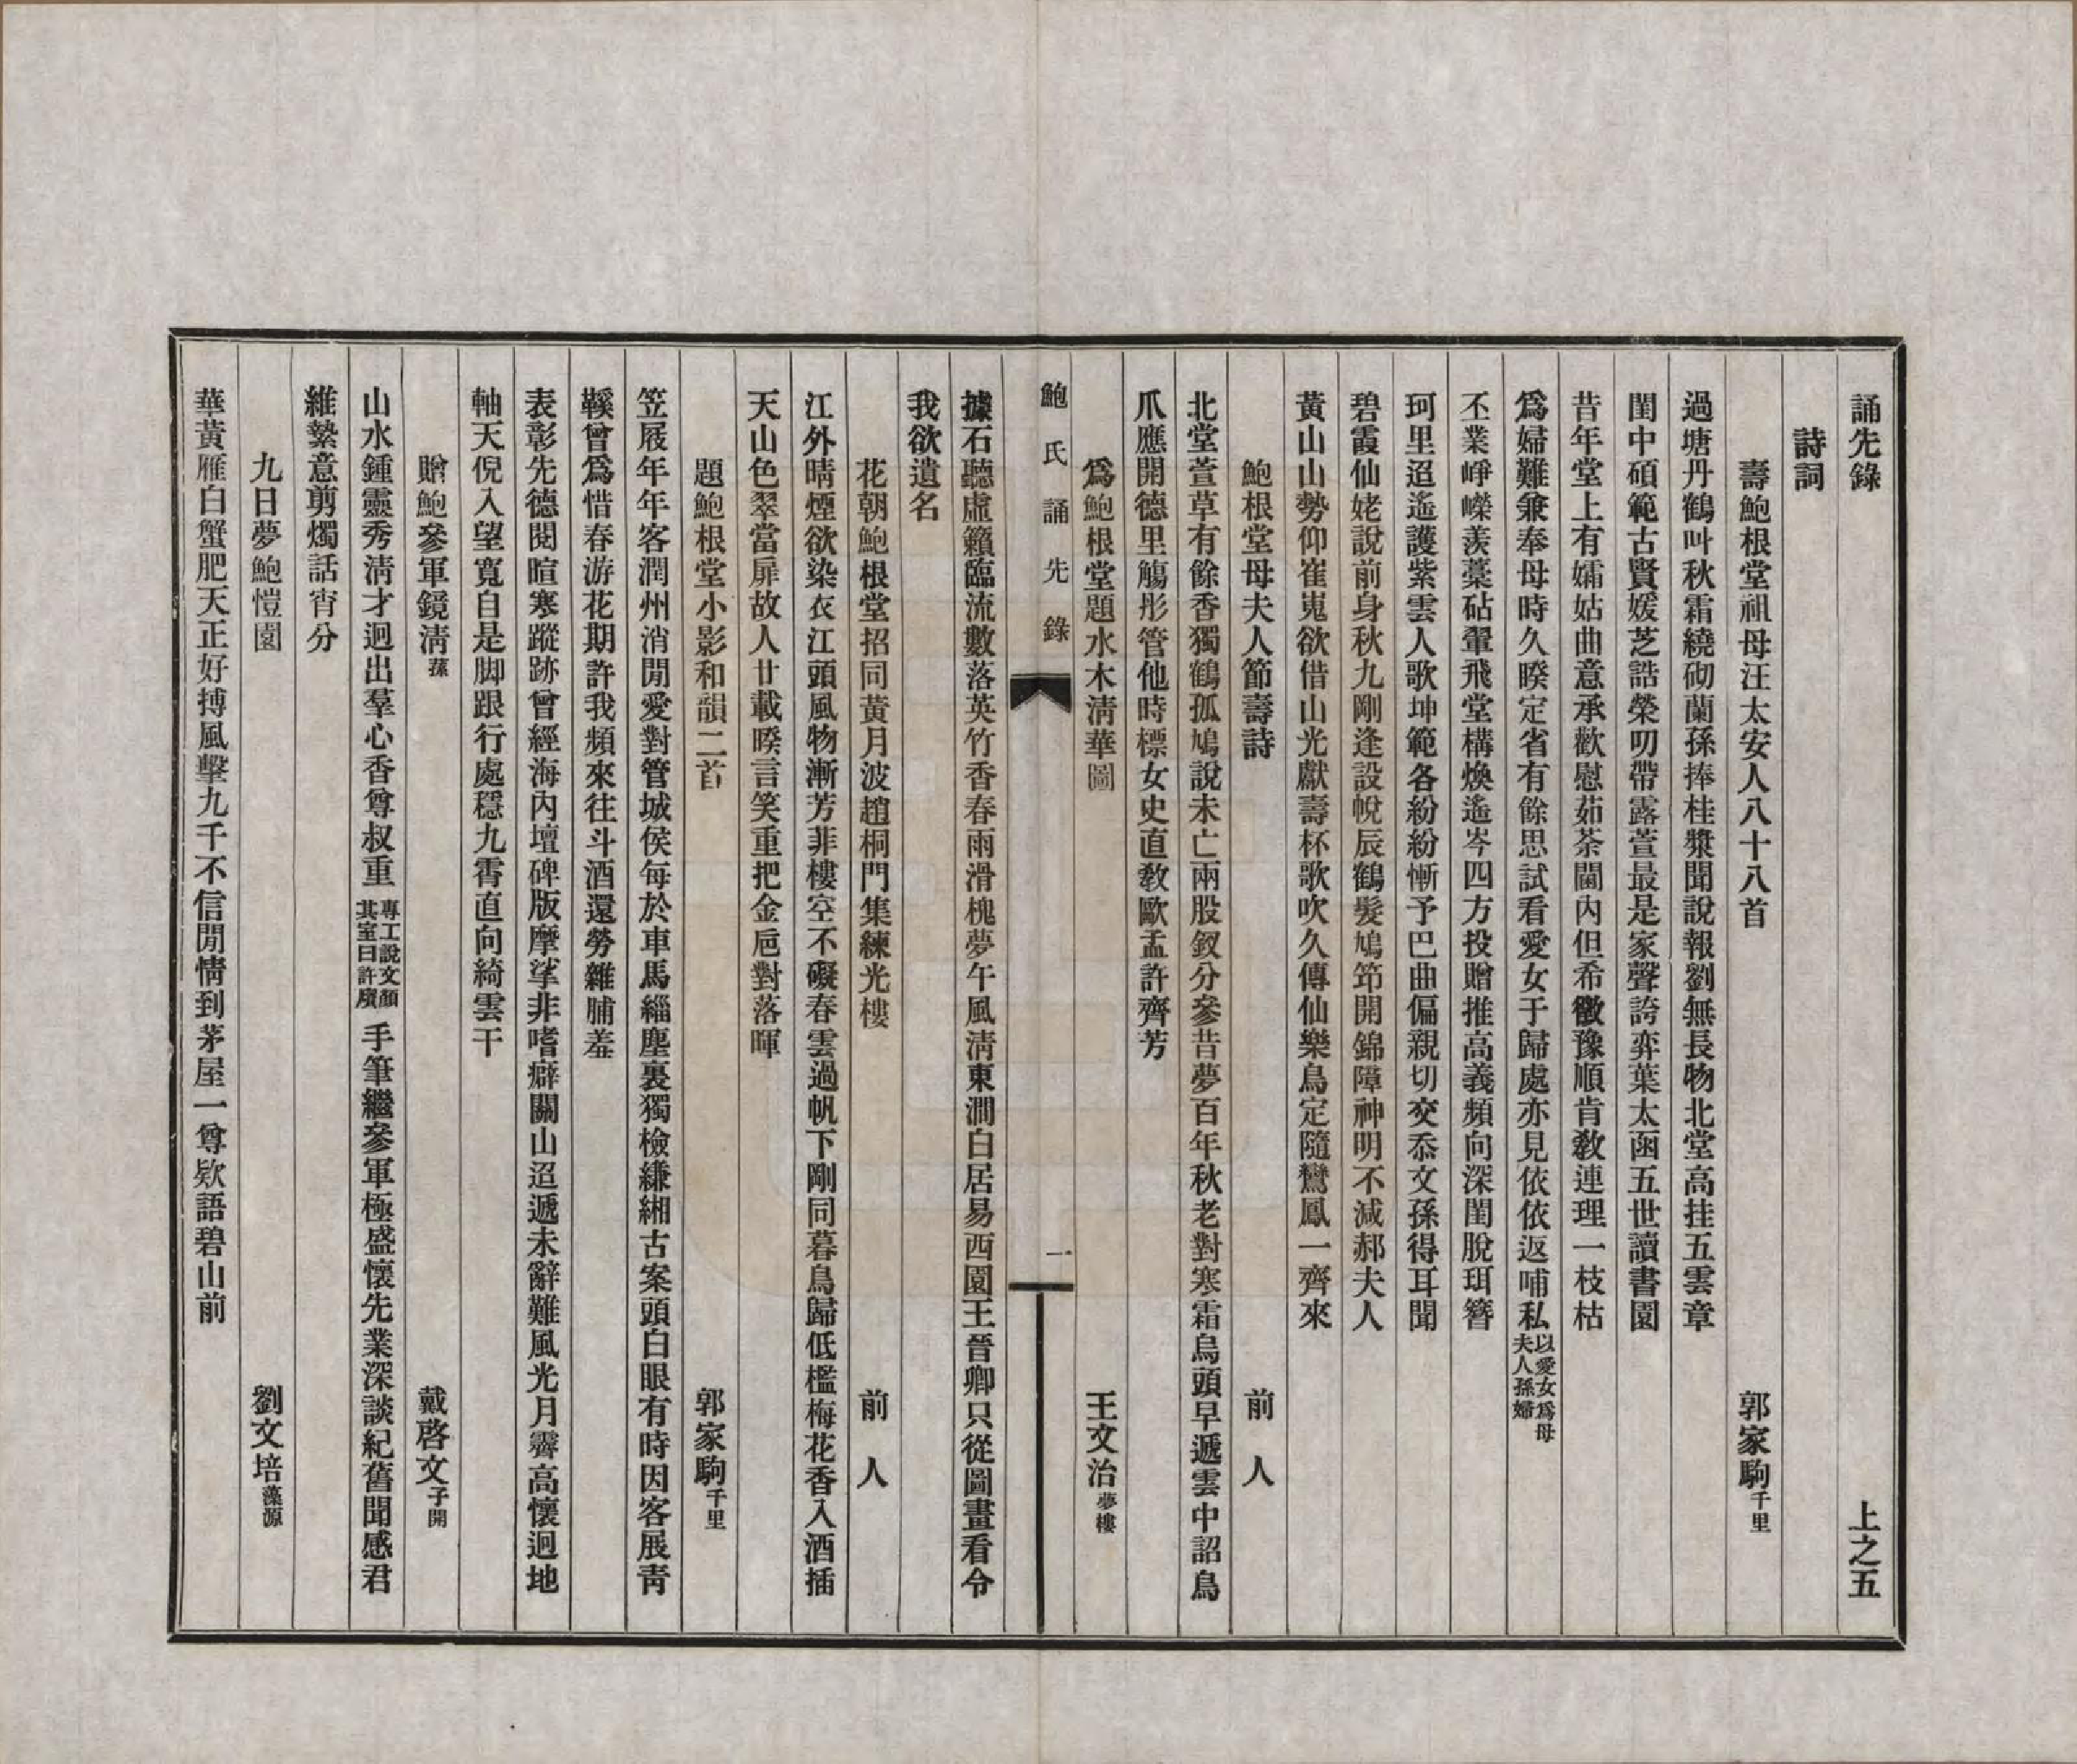 誦先錄　上之五
詩詞
壽鮑根堂祖母汪太安人八十八首　郭家駒千里
過塘丹鶴叫秋霜繞砌蘭孫捧桂漿聞說報劉無長物北堂高挂五雲章
閨中碩範古賢媛芝誥榮叨帶露萱最是家聲誇弈葉太函五世讀書園
昔年堂上有孀姑曲意承歡慰茹茶閫內但希徽豫順肯教連理一枝枯
爲婦難兼奉母時久睽定省有餘思試看愛女于歸處亦見依依返哺私以愛女爲母夫人孫婦
丕業崢嶸羨藁砧翬飛堂構煥遙岑四方投贈推高義頻向深閨脫珥簪
珂里迢遙護紫雲人歌坤範各紛紛慚予巴曲偏親切交忝文孫得耳聞
碧霞仙姥說前身秋九剛逢設帨辰鶴髮鳩笻開錦障神明不減郝夫人
黃山山勢仰崔嵬欲借山光獻壽杯歌吹久傳仙樂鳥定隨鸞鳳一齊來
鮑根堂母夫人節壽詩　前人
北堂萱草有餘香獨鶴孤鳩說未亡兩股釵分參昔夢百年秋老對寒霜烏頭早遞雲中詔鳥
爪應開德里觴彤管他時標女史直教歐孟許齊芳
爲鮑根堂題水木清華圖　王文治夢樓
鮑氏誦先錄　一
據石聽虛籟臨流數落英竹香春雨滑槐夢午風清東澗白居易西園王晉卿只從圖畫看令
我欲遺名
花朝鮑根堂招同黃月波趙桐門集練光樓　前人
江外晴煙欲染衣江頭風物漸芳菲樓空不礙春雲過帆下剛同暮鳥歸低檻梅花香入酒插
天山色翠當扉故人廿載睽言笑重把金巵對落暉
題鮑根堂小影和韻二首　郭家駒千里
笠屐年年客潤州消閒愛對管城侯每於車馬緇塵裏獨檢縑緗古案頭白眼有時因客展靑
鞵曾爲惜春游花期許我頻來往斗酒還勞雜脯羞
表彰先德閱暄寒蹤跡曾經海內壇碑版摩挲非嗜癖關山迢遞未辭難風光月霽高懷迥地
軸天倪入望寬自是脚跟行處穩九霄直向綺雲干
贈鮑參軍鏡清蓀　戴啓文子開
山水鍾靈秀清才迥出羣心香尊叔重專工說文顏其室曰許廎手筆繼參軍極盛懷先業深談紀舊聞感君
維縶意剪燭話宵分
九日夢鮑愷園　劉文培藻源
華黃雁白蟹肥天正好搏風擊九千不信閒情到茅屋一尊欵語碧山前